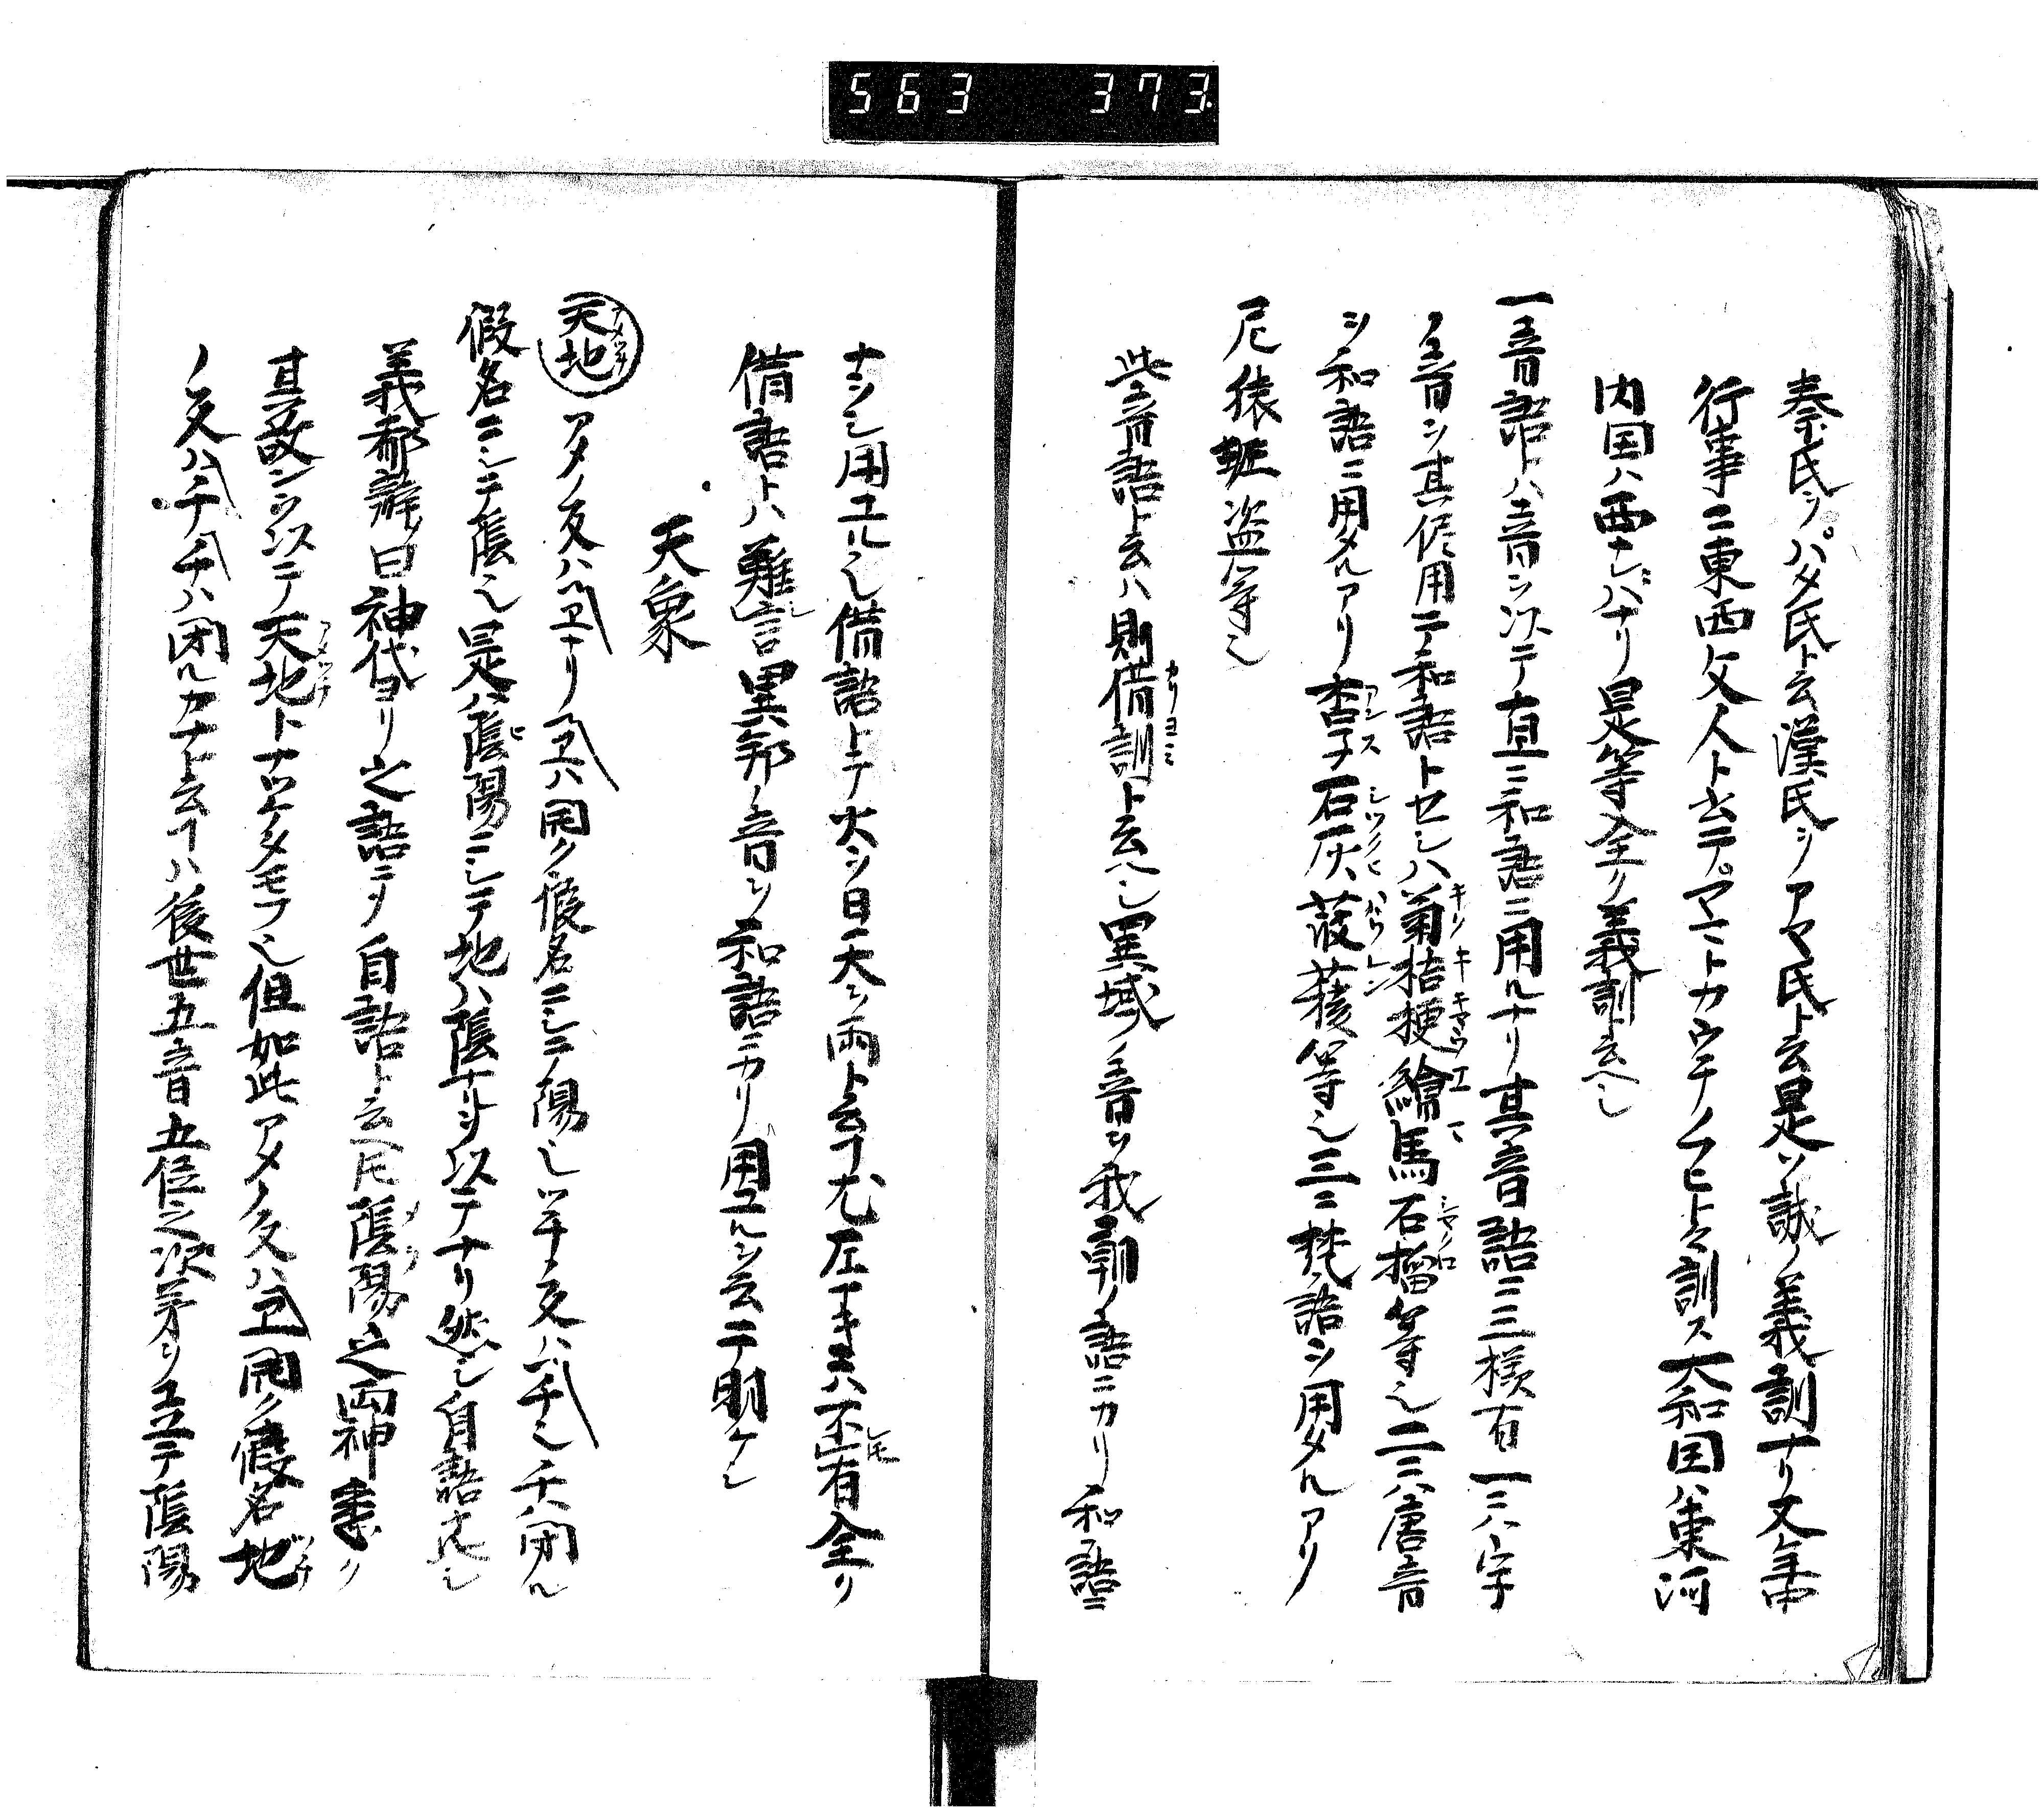 563 373
秦氏ヲハタ氏ト云漢氏ヲアヤ氏ト云是ハ誠ノ義訓ナリ又年中
行事ニ東西文人ト書テヤマトカウチノフヒトヽ訓ス大和国ハ東河
内国ハ西ナレバナリ是等全ク義訓ト云ヘシ
一音語トハ音ヲ次テ直ニ和語ニ用ルナリ其音語ニ三様有一ニハ字
ノ音ヲ其侭用ニテ和語トセシハ菊桔梗繪馬石榴等也二ニハ唐音
ヲ和語ニ用タルアリ杏子石灰菠薐等也三ニ梵語ヲ用タルアリ
尼猿 盗等也
此音語ト云ハ則借訓ト云ヘシ異域ノ音ヲ我朝ノ語ニカリ和語ニ
ナシ用ユル也借語トテ火ヲ日天ヲ雨ト云フ尤左丁キ ハ不有全ク
借語トハ難言異邦ノ音ヲ和語ニカリ用ユルヲ云ニ明ケシ
天象
天地 アメノ反ハヱナリヱハ開ク假名ニシテ陽也ツチノ反ハチ也チハ閉ル
假名ニシテ陰也是ハ陰陽ニシテ地ハ陰ナリヲ以テナリ然シ自語 シ
義都辭曰神代ヨリ之語ニメ自語ト云ヘ陰陽之両神 ク
其故ヲ以テ天地トナツケタモフ也但如此アメノ反ハヱ開ク假名地
ノ反ハチチハ閉ルカナト云フハ後世五音五位之次第ヲ立テ陰陽